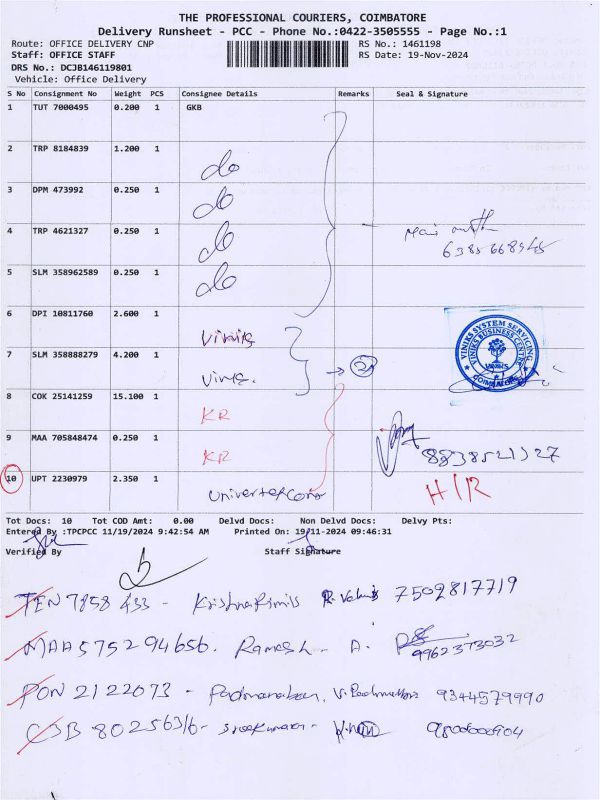 THE PROFESSIONAL COURIERS, COIMBATORE
Delivery Runsheet - PCC - Phone No.:0422-3505555 - Page No.:1
Route: OFFICE DELIVERY CNP RS No.: 1461198
Staff: OFFICE STAFF RS Date: 19-Nov-2024
DRS No.: DCJB146119801
Vehicle: Office Delivery
S No Consignment No Weight PCS Consignee Details Remarks Seal & Signature
1 TUT 7000495 0.200 1 GKB
2 TRP 8184839 1.200 1 do
3 DPM 473992 0.250 1 do
4 TRP 4621327 0.250 1 do
5 SLM 358962589 0.250 1 do
6 DPI 10811760 2.600 1 Viniks
7 SLM 358888279 4.200 1 Viniks.
VINIKS SYSTEM SERVICING
VINIKS BUSINESS CENTRE
VINIKS
COIMBATORE
8 COK 25141259 15.100 1 KR
9 MAA 705848474 0.250 1 KR
10 UPT 2230979 2.350 1
Tot Docs: 10 Tot COD Amt: 0.00 Delvd Docs: Non Delvd Docs: Delvy Pts:
Entered By :TPCPCC 11/19/2024 9:42:54 AM Printed On: 19/11-2024 09:46:31
Verified By Staff Signature
TEN 7858 433 - 7502817719
MAA 575294656. Ramesh - A.
9962373032
PON 2122073 - Padmanaban, 9344579990
80256316-